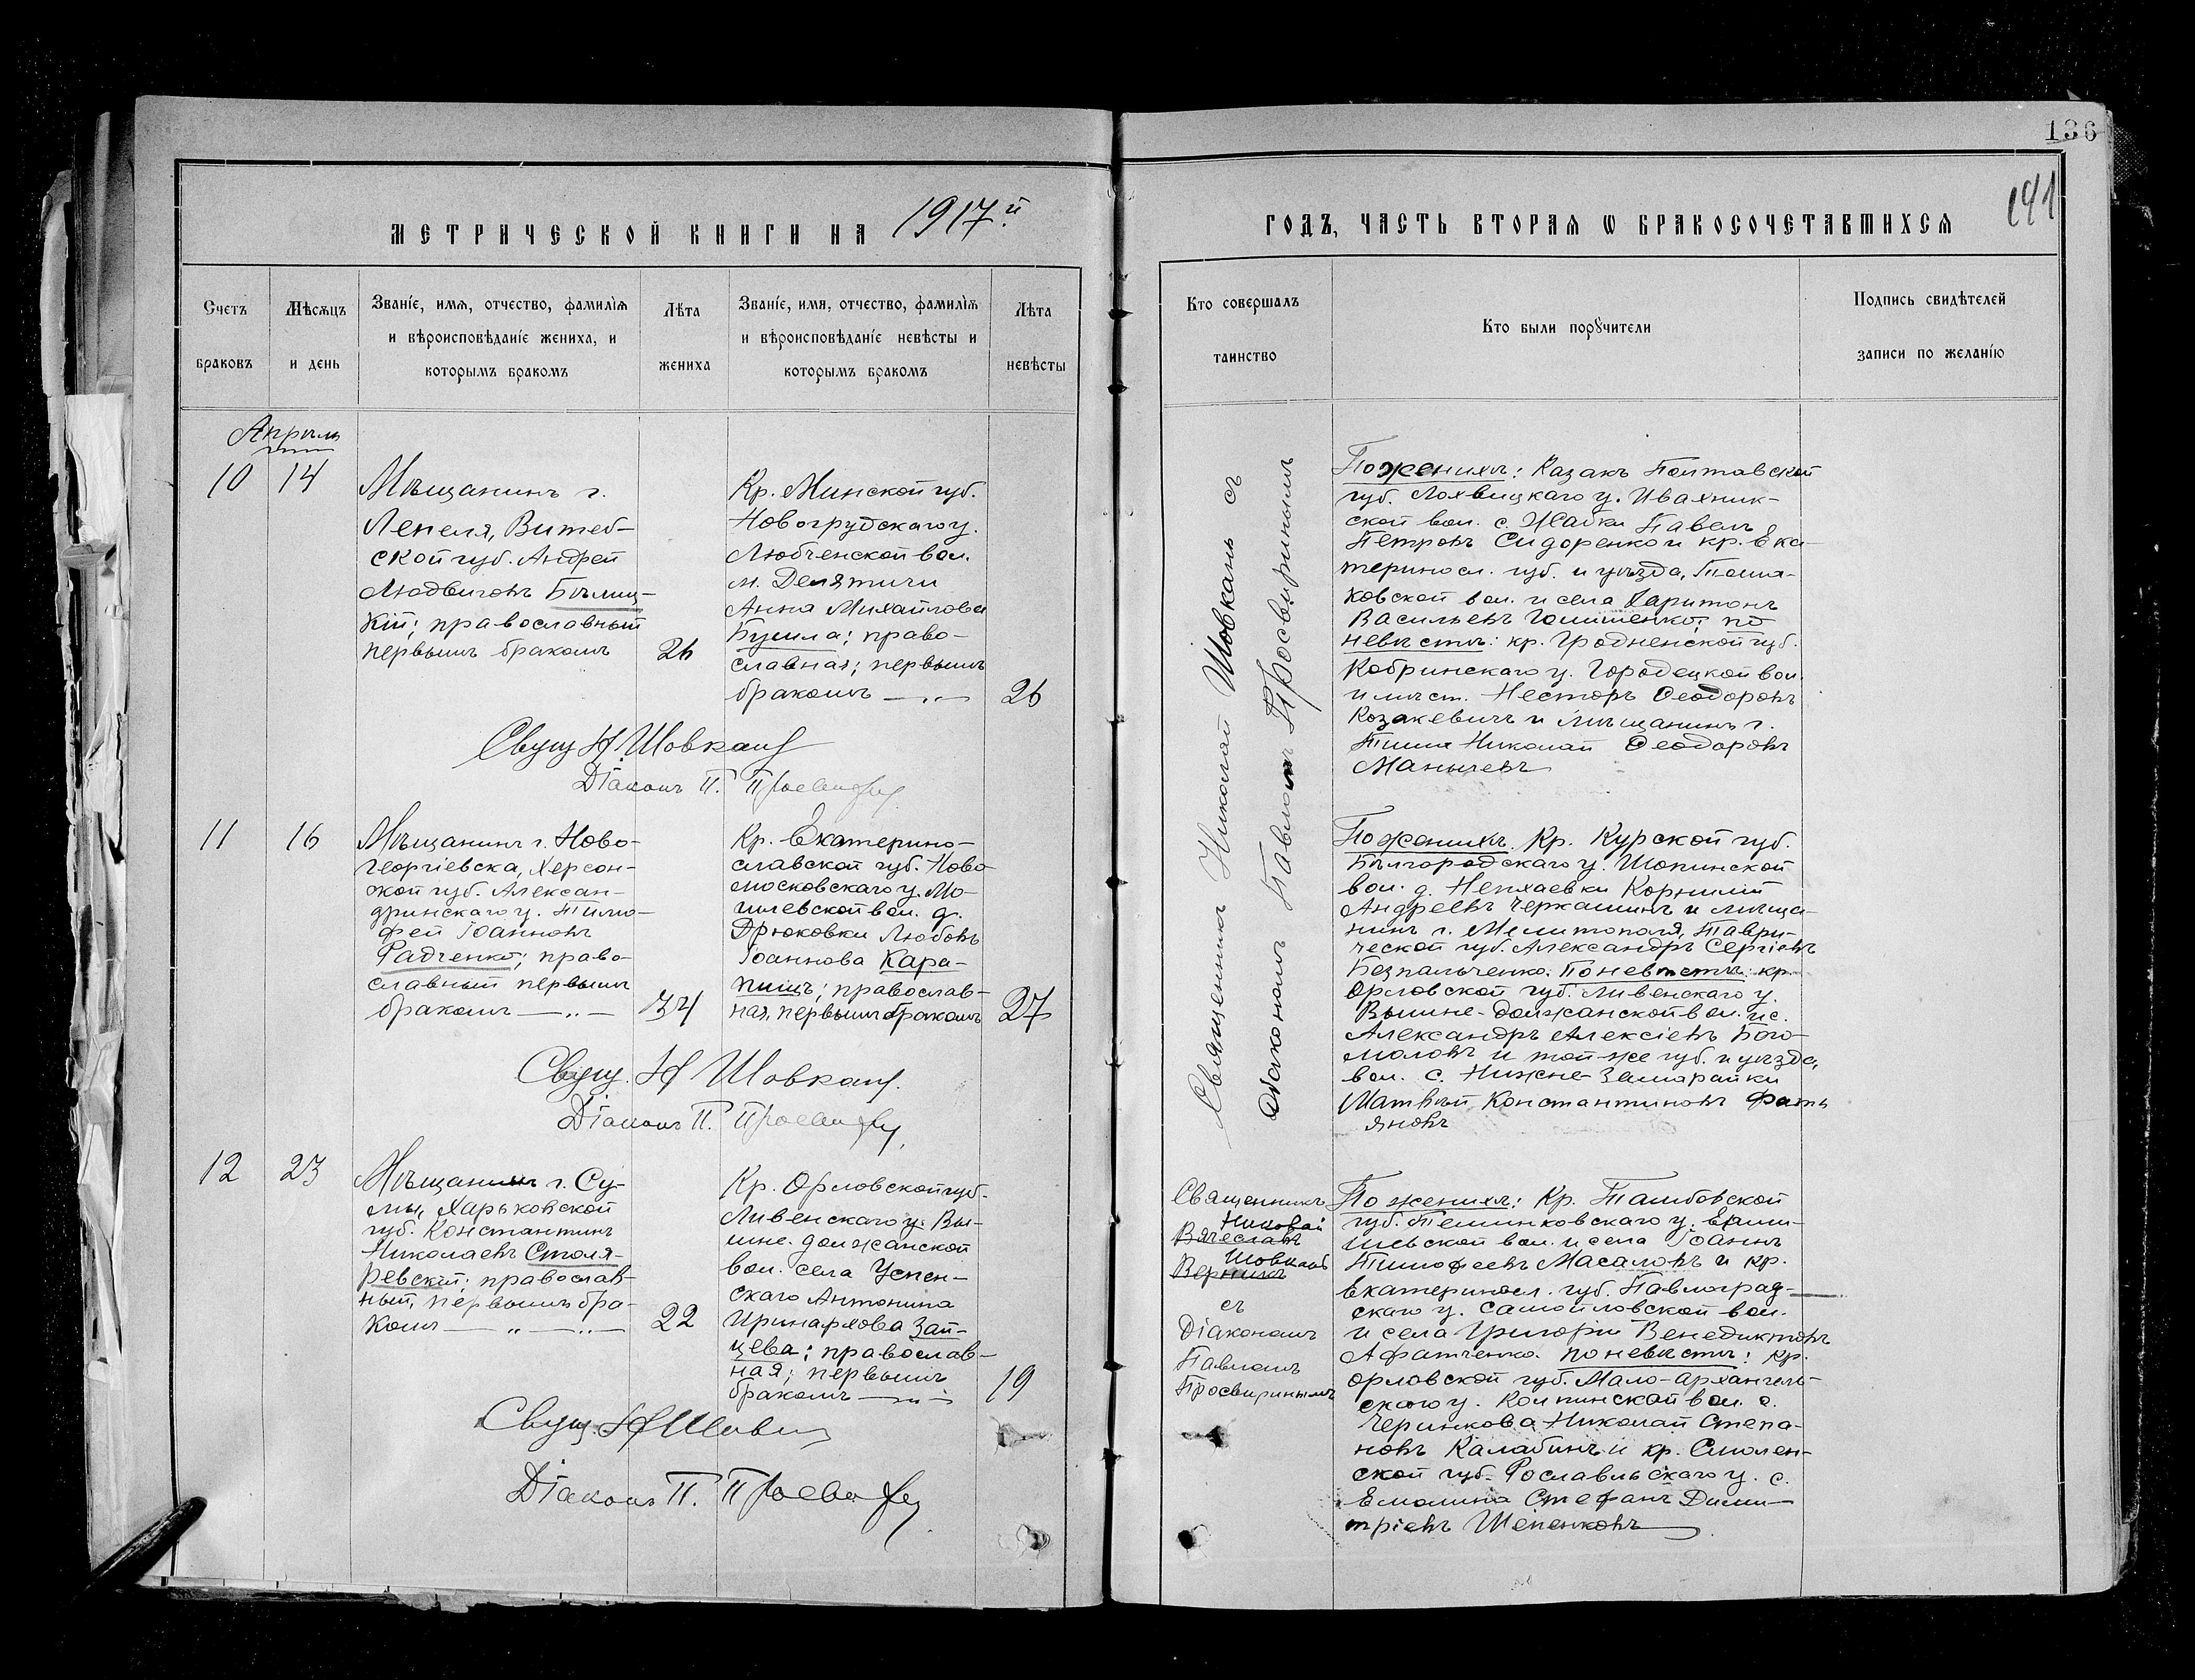 136
141
МЕТРИЧЕСКОЙ КНИГИ НА 1917й
ГОДЪ, ЧАСТЬ ВТОРАЯ Ѡ БРАКОСОЧЕТАВШИХСЯ
Счетъ
браковъ
Мѣсяцъ
и день
Званіе, имя, отчество, фамилія
и вѣроисповѣданіе жениха, и
которымъ бракомъ
Лѣта
жениха
Званіе, имя, отчество, фамилія
и вѣроисповѣданіе невѣсты и
которымъ бракомъ
Лѣта
невѣсты
Кто совершалъ
таинство
Кто были порꙋчители
Подпись свидѣтелей
записи по желанію
Апрѣль
10
14
Мѣщанинъ г.
Лепеля, Витеб-
ской губ. Андрей
Людвиговъ Бѣлиц-
кій; православный
первымъ бракомъ
26
Кр. Минской губ.
Новогрудскаго у.
Любченской вол.
м. Делятичи
Анна Михайлова
Бусила; право-
славная; первымъ
бракомъ — „ —
26
Свящ Н. Шовкань
Діаконъ П. Просвир
Священникъ Николай Шовкань съ
Діакономъ Павломъ Просвиринымъ
По женихѣ: Казакъ Полтавской
губ. Лохвицкаго у. Ивахник-
ской вол. с. Исайки Павелъ
Петровъ Сидоренко и кр. Ека-
теринос. губ. и уѣзда, Тома-
ковской вол. и села Харитонъ
Васильевъ Гошленко; по
невѣстѣ: кр. Гродненской губ.
Кобринскаго у. Городецкой вол.
и мѣст. Несторъ Ѳеодоровъ
Козакевичъ и Мѣщанинъ г.
Николай Ѳеодоровъ
Манычевъ
11
16
Мѣщанинъ г. Ново-
георгіевска, Херсон-
ской губ. Алексан-
дринскаго у. Тимо-
фей Іоанновъ
Радченко; право-
славный первымъ
бракомъ — „ —
34
Кр. Екатерино-
славской губ. Ново
московскаго у. Мо-
гилевской вол. д.
Дрюковки Любовь
Іоаннова Кара-
пишъ; православ-
ная, первымъ бракомъ
27
Свящ. Н Шовкань.
Діаконъ П. Просвир
По женихѣ. Кр. Курской губ.
Бѣлгородскаго у. Шопинской
вол. д. Непхаевки Корнилій
Андреевъ Черкашинъ и мѣща-
нинъ г. Мелитополя, Таври-
ческой губ. Александръ Сергіевъ
Безпальченко. По невѣстѣ: кр.
Орловской губ. Ливенскаго у.
Вышне-должанской вол. и с.
Александръ Алексіевъ Бого-
моловъ и той-же губ. и уѣзда,
вол. с. Нижне-Замарайки
Матвѣй Константиновъ Фать
яновъ
12
23
Мѣщанинъ г. Су-
мы, Харьковской
губ. Константинъ
Николаевъ Столя-
ревскій; православ-
ный, первымъ бра-
комъ — „ — „ —
22
Кр. Орловской губ.
Ливенскаго у. Вы-
шне-должанской
вол. села Успен-
скаго Антонина
Иринархова Зай-
цева; православ-
ная; первымъ
бракомъ — „ —
19
Свящ. Н Шовкань
Діаконъ П. Просвир
Священникъ
Николай
Вячеславъ
Шовкань
Верницъ
съ
Діакономъ
Павломъ
Просвиринымъ
По женихѣ: Кр. Тамбовской
губ. Темниковскаго у. Ерми-
шевской вол. и села Іоаннъ
Тимофеевъ Масаловъ и кр.
Екатеринос. губ. Павлоград-
скаго у. Самойловской вол.
и села Григорій Венедиктовъ
Афатченко. по невѣстѣ: кр.
Орловской губ. Мало-Архангель-
скаго у. Колпинской вол. с.
Черникова Николай Степа-
новъ Калабинъ и кр. Смолен-
ской губ. Рославльскаго у. с.
Емолина Стефанъ Дими-
тріевъ Шепенковъ